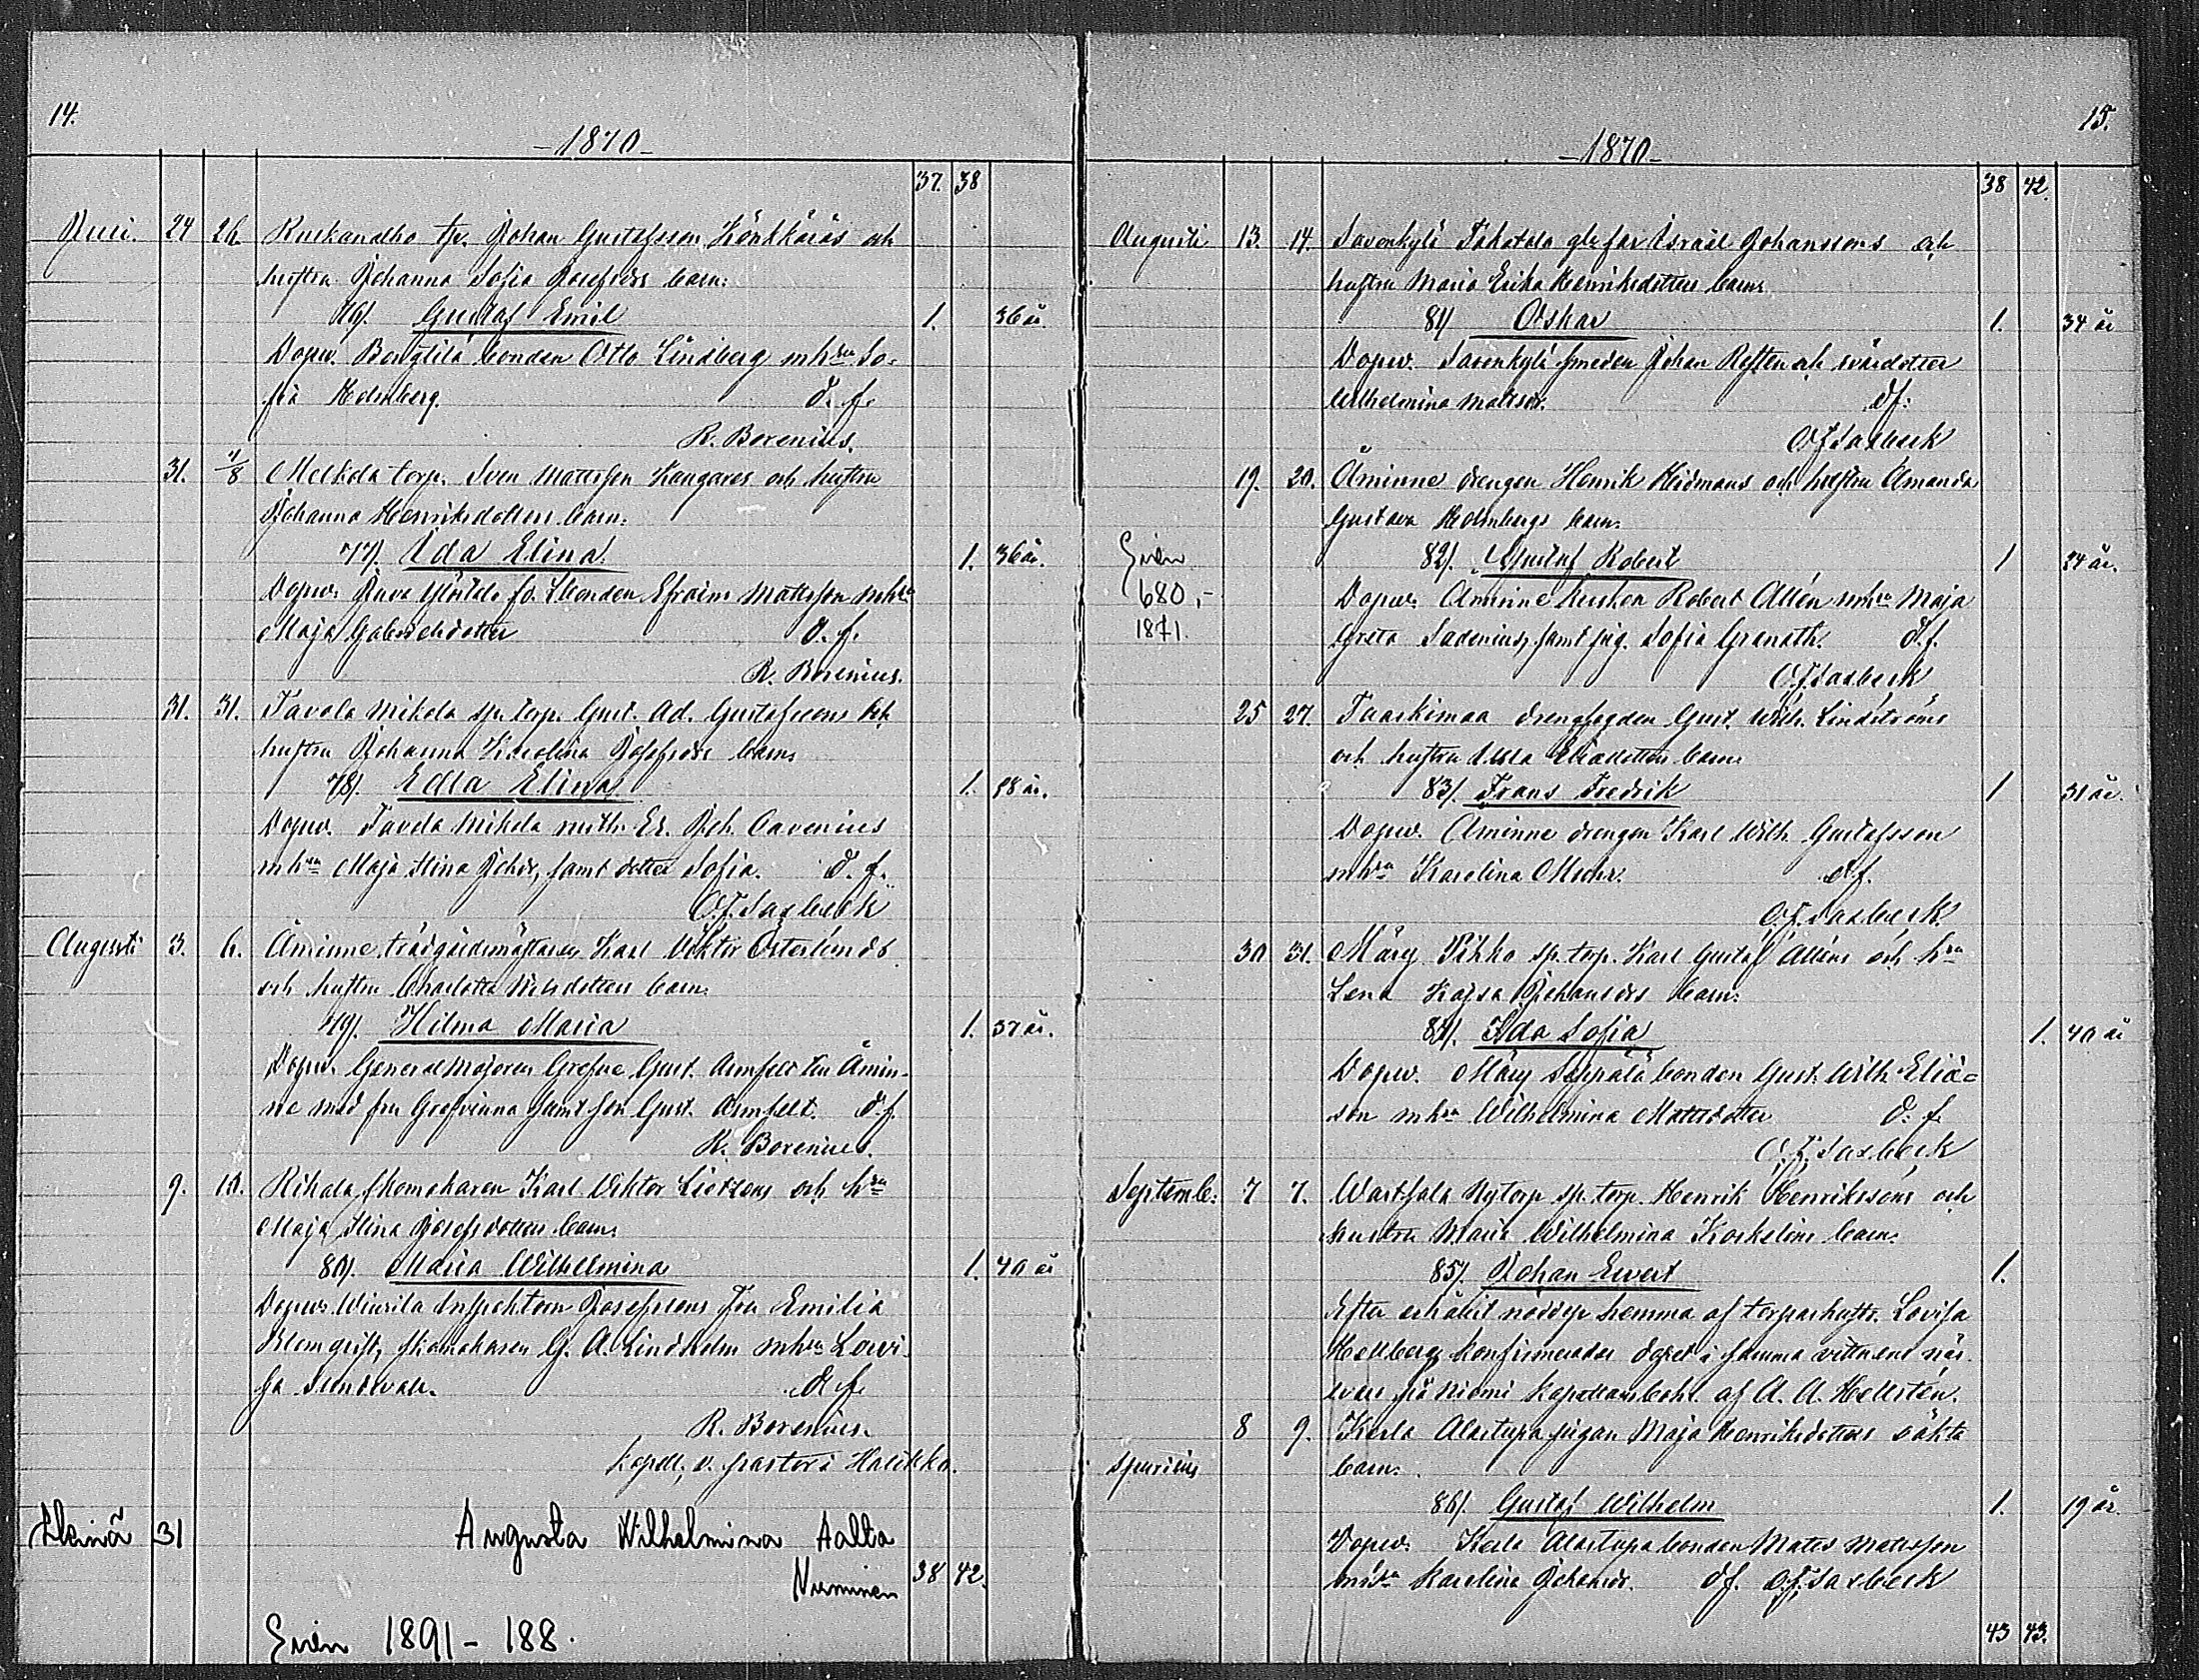 14.
-1870-
37. 38
Juli. 24 26. Johan Gustafsson och
hustru Johanna Sofia Josefsdrs barn.
76). Gustaf Emil 1. 36 år.
Dopw. bonden Otto Lindberg mhru So-
fia Holmberg. d. f.
R. Borenius.
31. 1/8 torp. Sven Mattsson Kangares och hustru
Johanna Henriksdotters barn.
77). Ida Elina. 1. 36 år.
Dopw. Efraim Mattsson mhru
Maja Gabrielsdotter d. f.
R. Borenius.
31. 31. Tavola Mikola sp. torp. Gust. Ad. Gustafssons och
hustru Johanna Karolina barn.
78). Edla Elina 1. 28 år.
Dopw. Tavola Mikola Er. Joh.
mhru Maja Stina Johdr, samt dotter Sofia. d. f.
O. F. Saxbeck
Augusti 3. 6. Åminne trädgårdsmästaren Karl Viktor Österlunds
och hustru Charlotta barn.
79). Hilma Maria 1. 37 år.
Dopw. General Majoren Grefve Gust. Armfelt från Åmin-
ne med fru Grefvinna samt son Gust. Armfelt. d. f.
R. Borenius.
9. 10. Rikala skomakaren Karl Viktor och hru
Maja Stina Josefsdotters barn.
80). Maria Wilhelmina 1. 40 år
Dopw. Wiurila Inspektorn Josefssons fru Emilia
Blomqvist, skomakaren G. A. Lindholm mhru Lovi-
sa Sundvall. d. f.
R. Borenius.
kapell., v. pastor i Halikko.
Heinä 31 Augusta Wilhelmina Aalto
Nurminen 38 42.
1891 - 188.
15.
-1870-
38 42.
Augusti 13. 14. Savenkylä Israel Johanssons och
hustru Maria Erika Henriksdotters barn
81) Oskar 1. 34 år
Dopw. Savenkylä smeden Johan och
Wilhelmina Mattsdr. df.
O F Saxbeck
19. 20. Åminne drengen Henrik Widmans och hustru Amanda
Gustava Holmbergs barn.
82). Gustaf Robert 1 24 år.
680,-
1871.
Dopw. Åminne kusken Robert Allén mhru Maja
Greta samt pig. Sofia Granath. d. f.
O. F. Saxbeck
25 27. drengfogden Gust. Wilh. Lindströms
och hustru Eliædotters barn
83). Frans Fredrik 1 31 år.
Dopw. Åminne drengen Karl Wilh. Gustafsson
mhru Karolina d. f.
O. F. Saxbeck
30 31. Märy Pihko sp. torp. Karl Gustaf Alléns och hru
Lena Kajsa Johansdrs barn.
84). Ida Sofia 1. 40 år
Dopw. Märy Seppälä bonden Gust. Wilh. Eliæ-
son mhru Wilhelmina Mattsdotter d. f.
O. F. Saxbeck
Septemb. 7 7. Wartsala Nytorp sp. torp. Henrik Henrikssons och
hustru Maria Wilhelmina Koskelins barn.
85). Johan Evert 1.
Efter erhållit nöddop hemma af torparhustr. Lovisa
Hellberg konfirmerades dopet i samma vittnens när-
varo på Niemi kapellansbohl. af A. A. Hellstén.
spurius
8 9. pigan Maja Henriksdotters oäkta
barn.
86). Gustaf Wilhelm 1. 19 år.
Dopw. bonden Matts Mattsson
mhru Karolina Johansdr. df. O. F. Saxbeck
43 43.